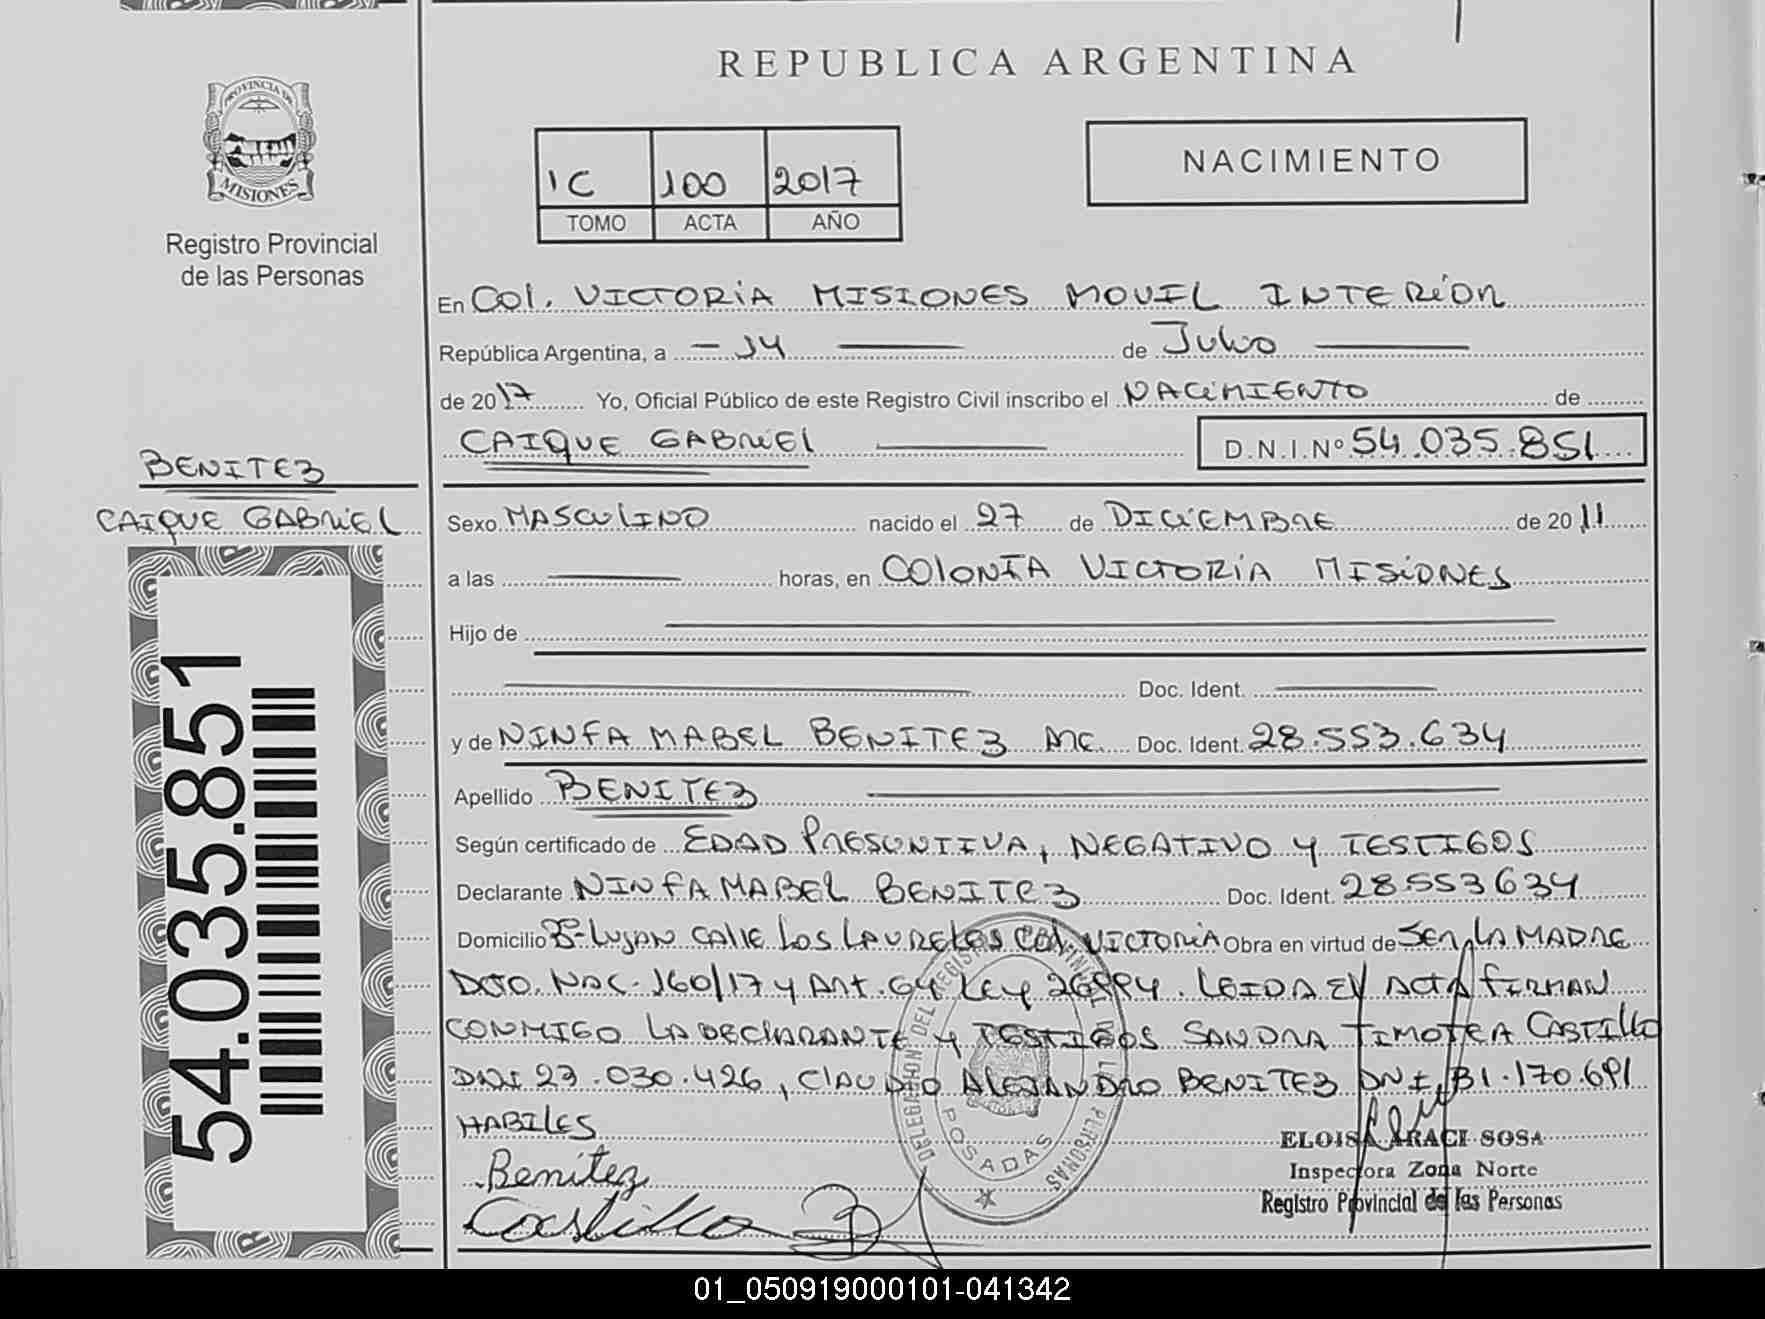 REPUBLICA ARGENTINA
PROVINCIA DE
MISIONES
Registro Provincial
de las Personas
1C 100 2017
TOMO ACTA AÑO
NACIMIENTO
En COL. VICTORIA MISIONES MOVIL INTERIOR
República Argentina, a - 14 de Julio
de 2017 Yo, Oficial Público de este Registro Civil inscribo el NACIMIENTO de
CAIQUE GABRIEL D.N.I.Nº 54.035.851
BENITEZ
CAIQUE GABRIEL
Sexo MASCULINO nacido el 27 de DICIEMBRE de 2011
a las horas, en COLONIA VICTORIA MISIONES
Hijo de
Doc. Ident.
y de NINFA MABEL BENITEZ ARG. Doc. Ident. 28.553.634
Apellido BENITEZ
Según certificado de EDAD PRESUNTIVA, NEGATIVO Y TESTIGOS
Declarante NINFA MABEL BENITEZ Doc. Ident. 28.553634
Domicilio Bº- LUJAN CALLE LOS LAURELES COL. VICTORIA Obra en virtud de SER LA MADRE
DCTO. NAC. 160/17 Y ART. 64 LEY 26994. LEIDA EL ACTA FIRMAN
CONMIGO LA DECLARANTE Y TESTIGOS SANDRA TIMOTEA CASTILLO
DNI 23.030.426, CLAUDIO ALEJANDRO BENITEZ DNI. 31.170.691
HABILES
54.035.851
Benítez
Castillo
DELEGACION DEL REGISTRO PROVINCIAL DE LAS PERSONAS
POSADAS
ELOISA ARACI SOSA
Inspectora Zona Norte
Registro Provincial de las Personas
01_050919000101-041342